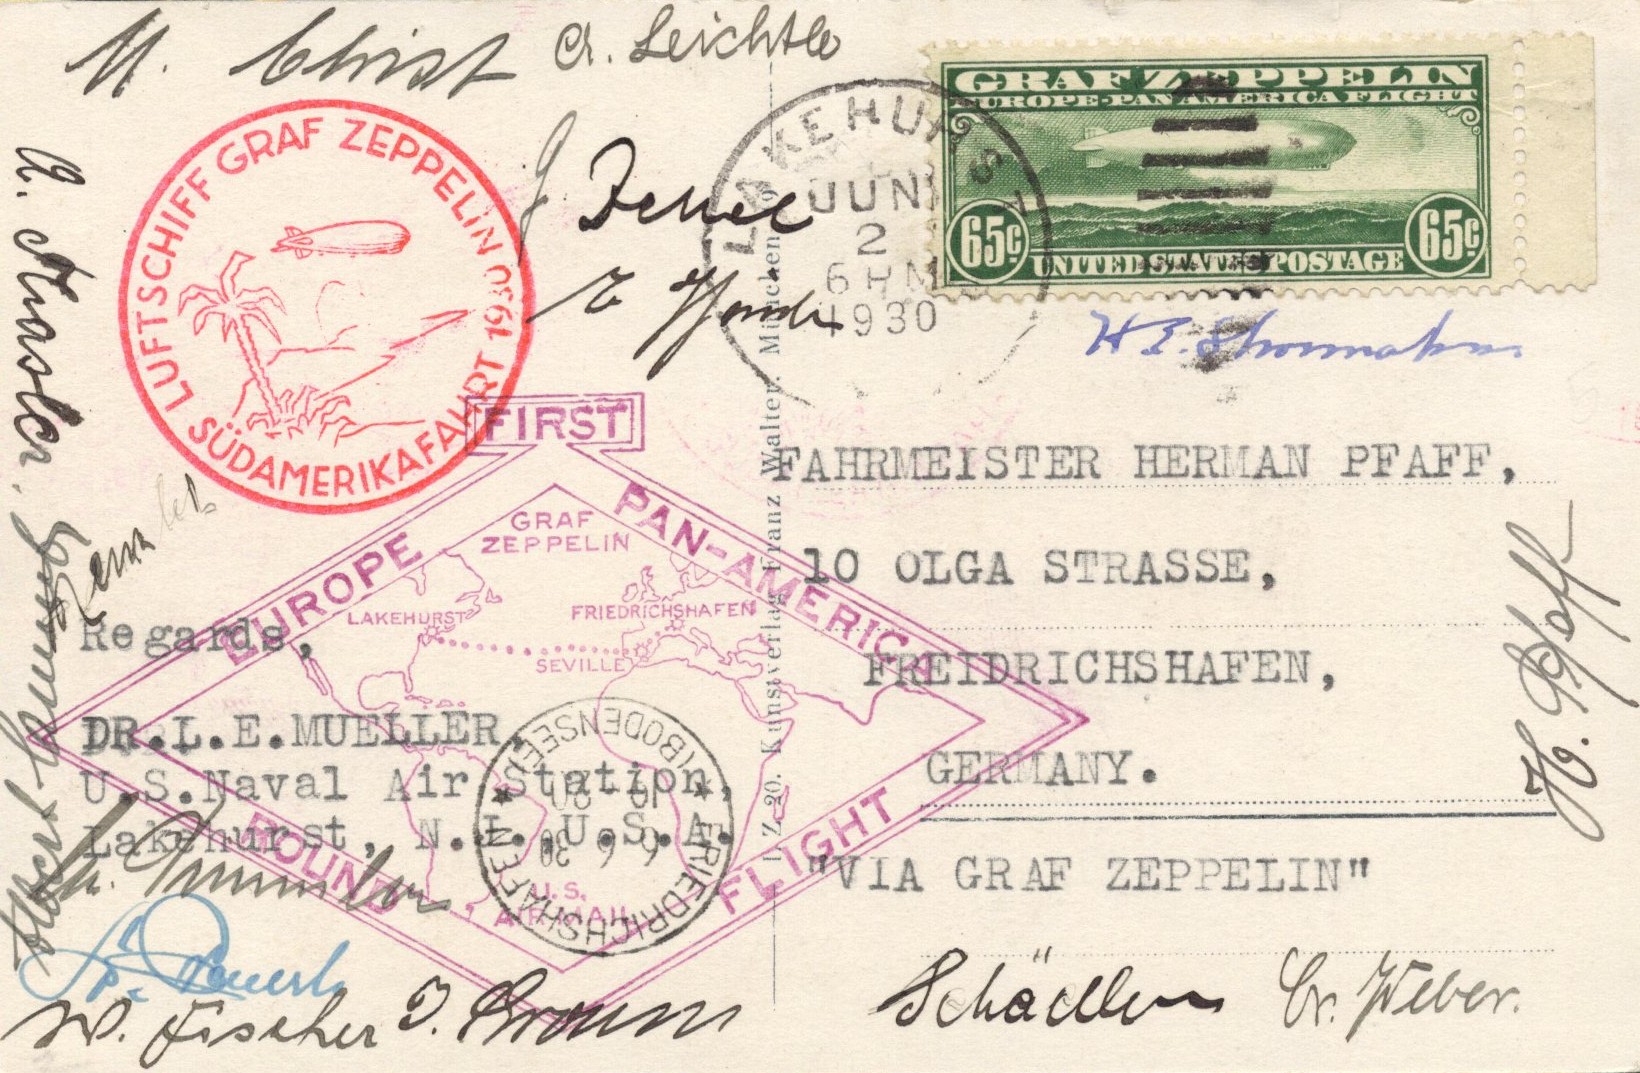 Christ
A. Leichtle
LUFTSCHIFF GRAF ZEPPELIN
SÜDAMERIKAFAHRT 1930
LAKEHURST
JUN
2
1930
GRAF ZEPPELIN
EUROPE-PAN AMERICA FLIGHT
65¢ 65¢
UNITED STATES POSTAGE
FIRST
EUROPE
PAN-AMERICA
ROUND
FLIGHT
GRAF
ZEPPELIN
LAKEHURST
FRIEDRICHSHAFEN
SEVILLE
U.S.
AIR MAIL
FRIEDRICHSHAFEN
(BODENSEE)
6 6 30
Kunstverlag Franz Walter. München
FAHRMEISTER HERMAN PFAFF,
10 OLGA STRASSE,
FREIDRICHSHAFEN,
GERMANY.
"VIA GRAF ZEPPELIN"
Regards,
DR.L.E.MUELLER,
U.S.Naval Air Station,
Lakehurst, N.J. U.S.A.
H. Pfaff
W. Fischer
Schädler
Weber.